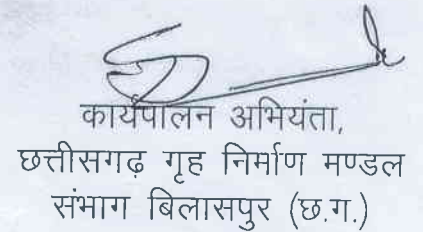 कार्यपालन अभियंता,
छत्तीसगढ़ गृह निर्माण मण्डल
संभाग बिलासपुर (छ.ग.)